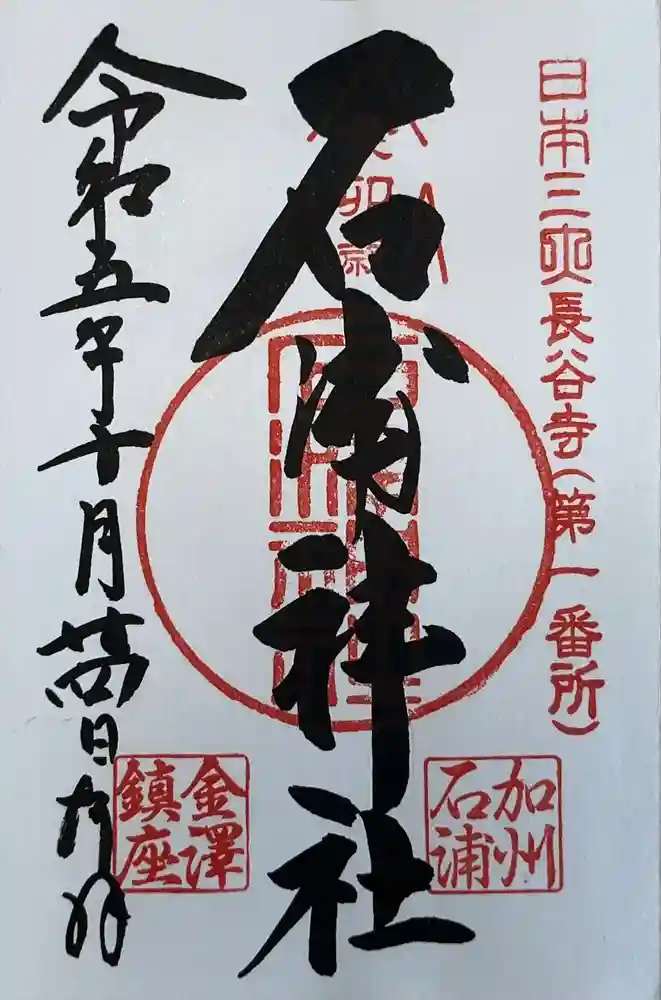 日本三大長谷寺(第一番所)
癸卯歳
石浦神社
石浦神社
加州
石浦
金澤
鎮座
令和五年十月廿四日奉拝